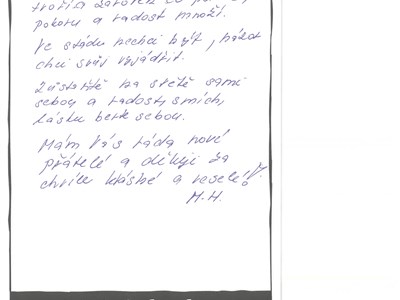 pokoru a radost množí.
Ve stádu nechci být, názor
chci svůj vyjádřit.
Zůstaňte na světě sami
sebou a radost, smích,
lásku berte sebou.
Mám Vás ráda noví
přátelé a děkuji za
chvíle krásné a veselé!
M.H.